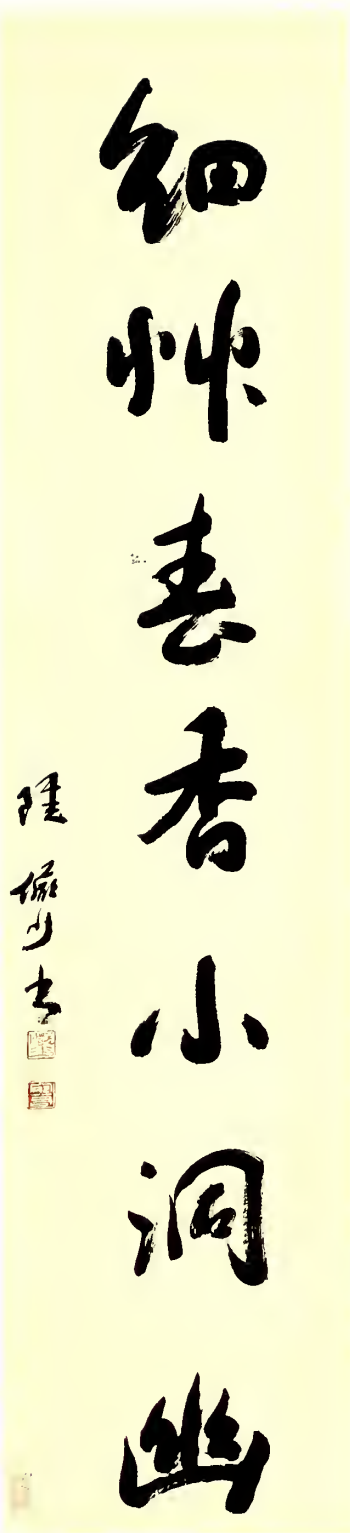 細艸春香小洞幽
陸儼少書